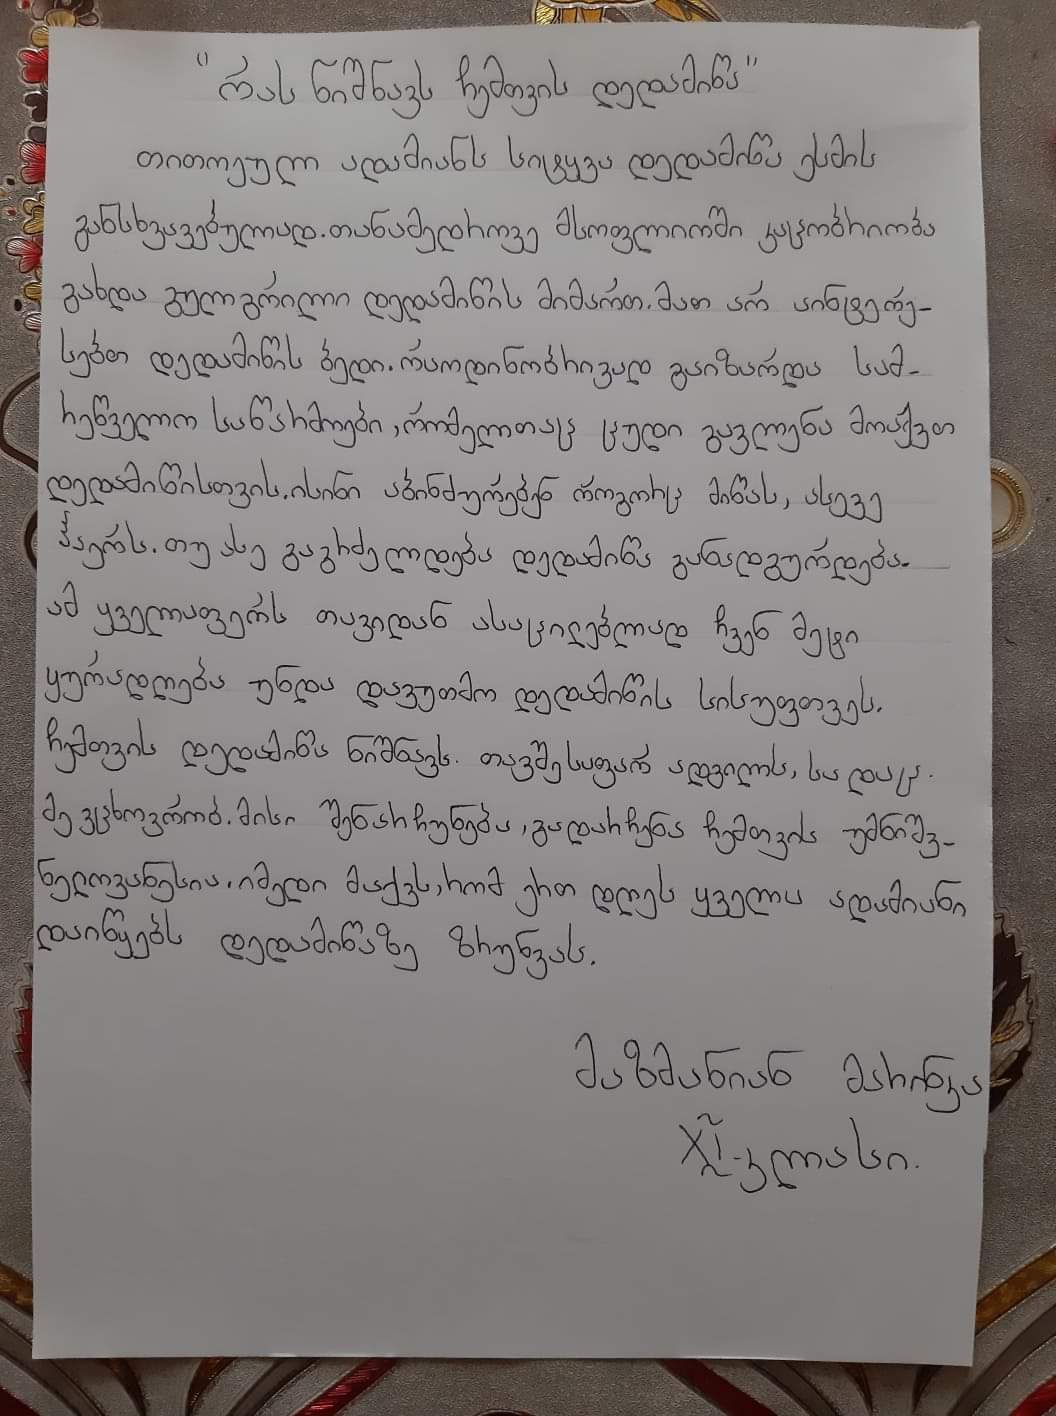 "რას ნიშნავს ჩემთვის დედამიწა"
თითოეულ ადამიანს სიტყვა დედამიწა ესმის
განსხვავებულად. თანამედროვე მსოფლიოში კაცობრიობა
გახდა გულგრილი დედამიწის მიმართ. მათ არ აინტერე-
სებთ დედამიწის ბედი. რაოდინობრივად გაიზარდა სამ-
რეწველო საწარმოები, რომელთაც ცუდი გავლენა მოაქვთ
დედამიწისთვის. ისინი აბინძურებენ როგორც მიწას, ასევე
ჰაერს. თუ ასე გაგრძელდება დედამიწა განადგურდება.
ამ ყველაფერს თავიდან ასაცილებლად ჩვენ მეტი
ყურადღება უნდა დავუთმო დედამიწის სისუფთვეს.
ჩემთვის დედამიწა ნიშნავს. თავშესაფარ ადგილს, სადაც.
მე ვცხოვრობ. მისი შენარჩუნება, გადარჩენა ჩემთვის უმნიშვ-
ნელოვანესია. იმედი მაქვს, რომ ერთ დღეს ყველა ადამიანი
დაიწყებს დედამიწაზე ზრუნვას.
მაზმანიან მარინკა
XI-კლასი.